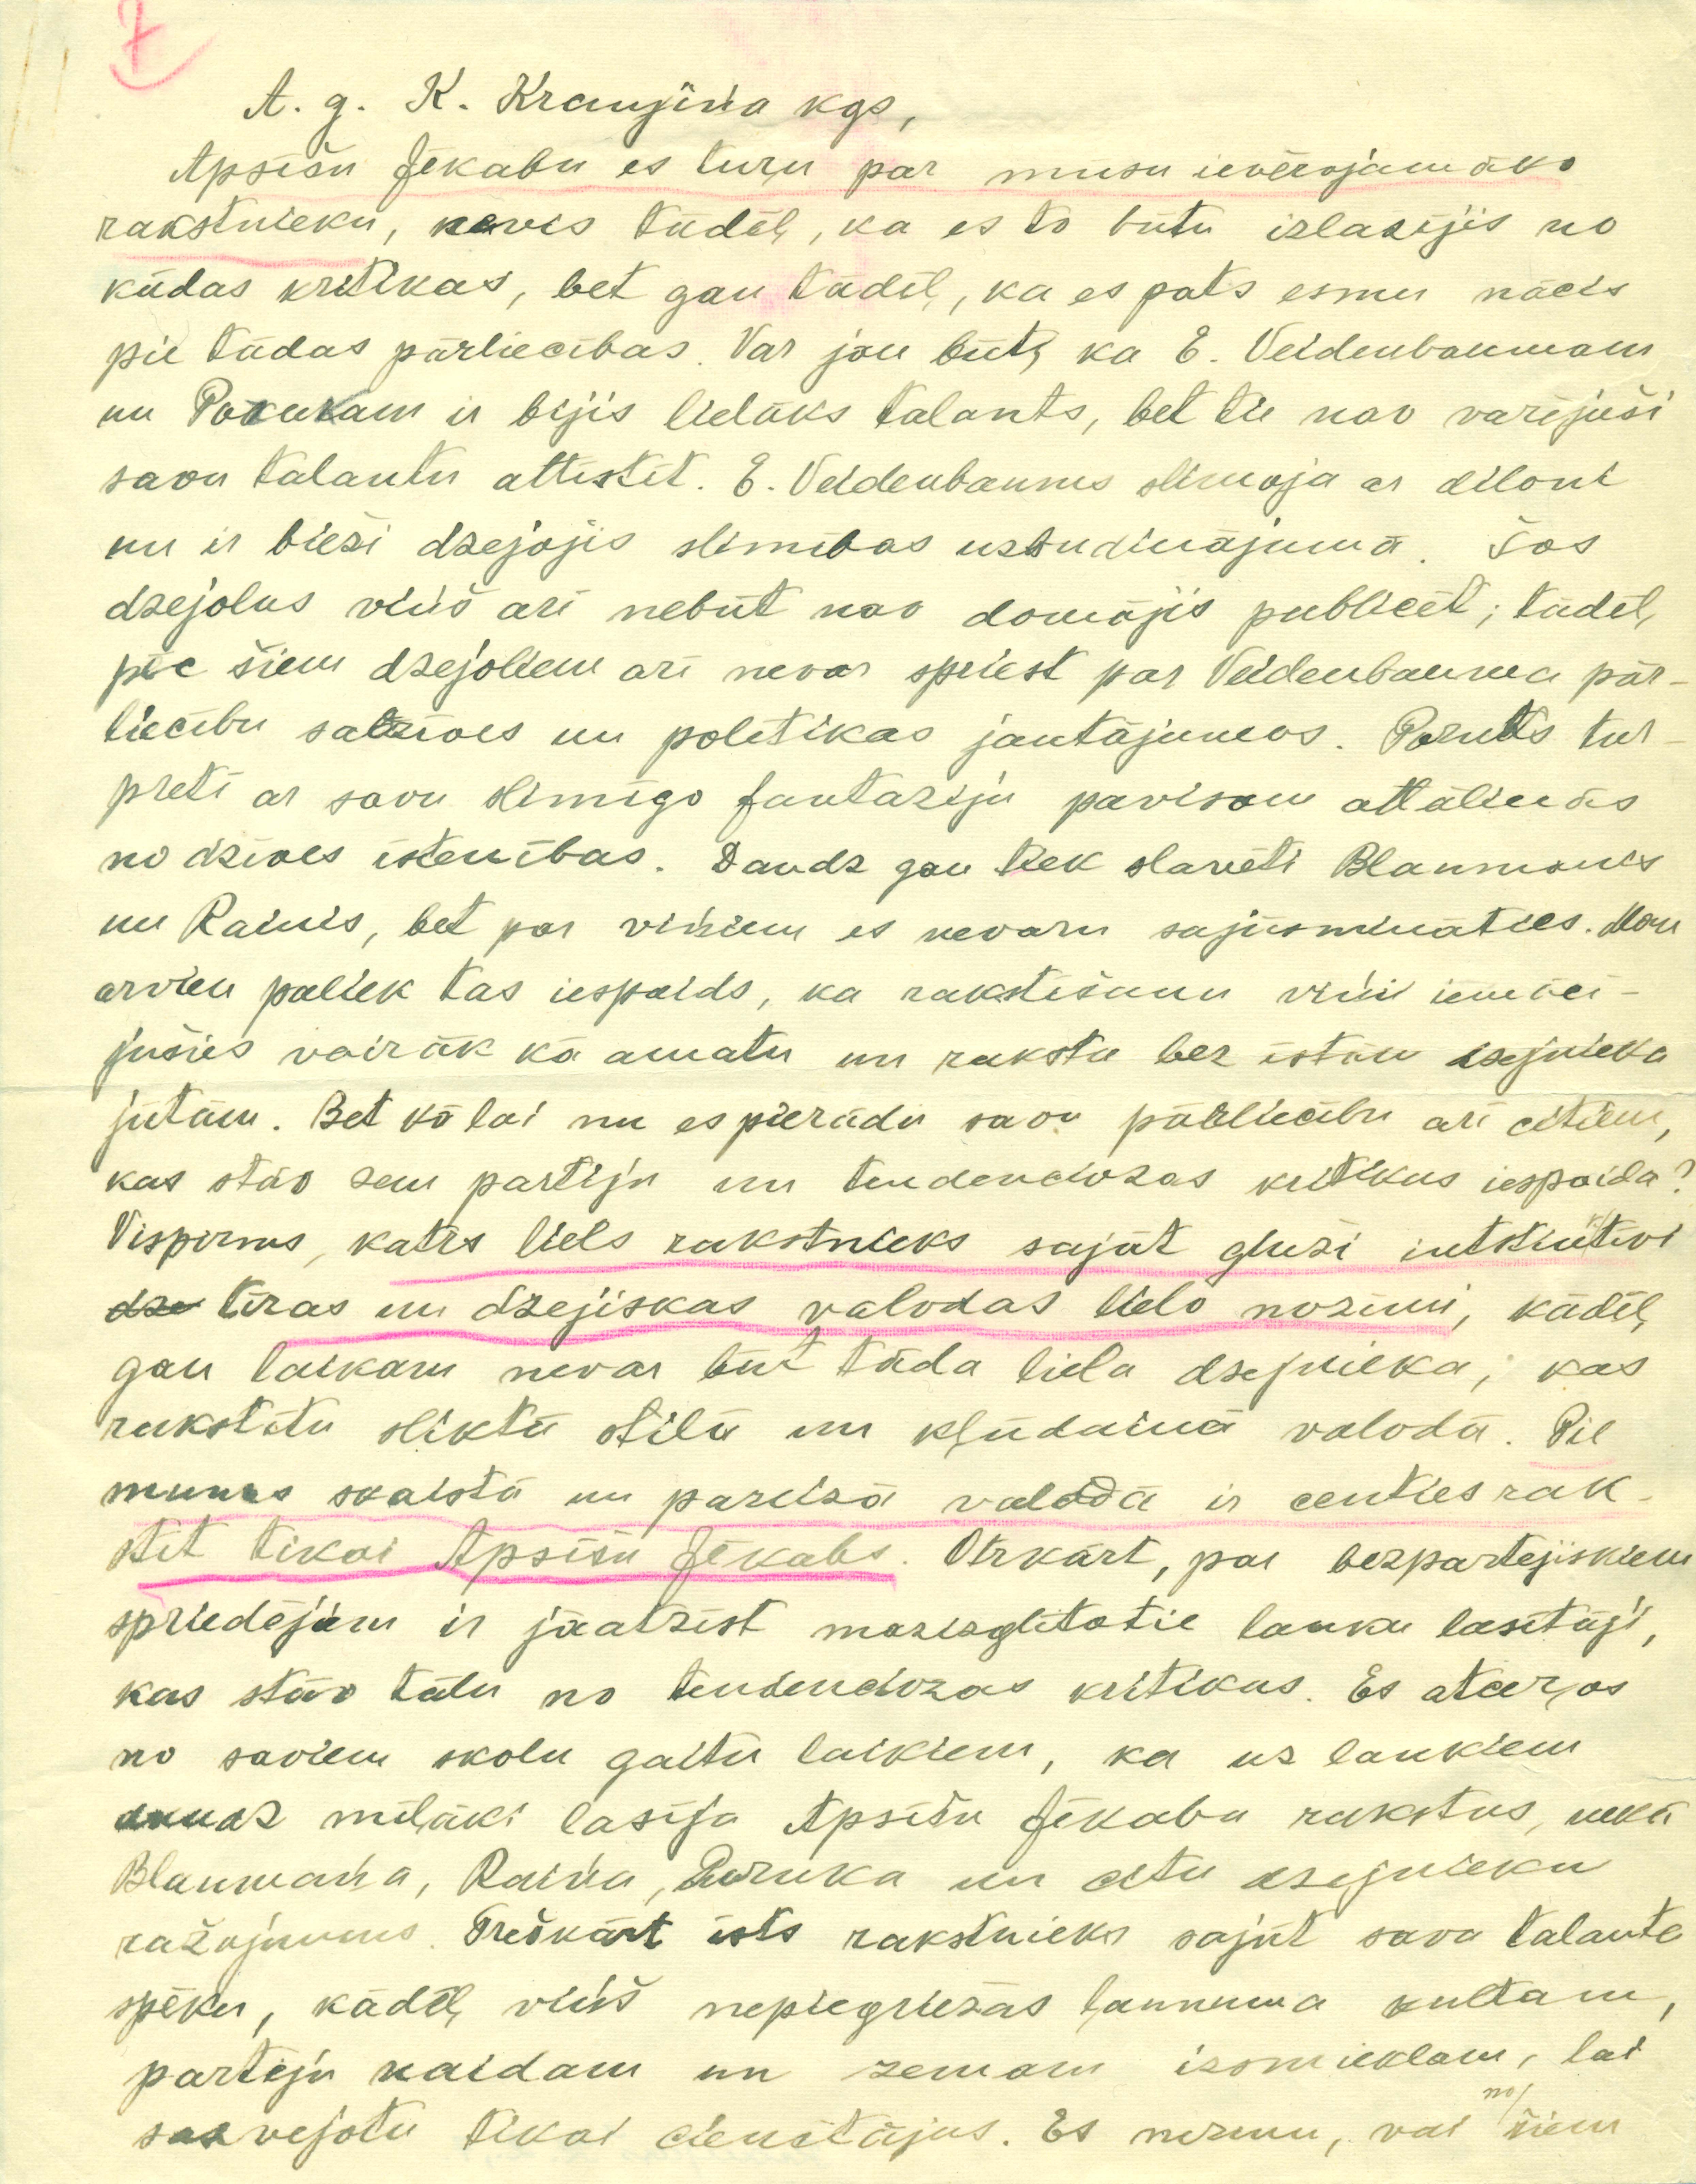 7
A. g. K. Kraujiņa kgs,
Apsīšu Jēkabu es turu par mūsu ievērojamāko
rakstnieku, nevis tādēļ, ka es to būtu izlasījis no
kādas kritikas, bet gan tādēļ, ka es pats esmu nācis
pie tādas pārliecības. Var jau būt, ka E. Veidenbaumam
un Porukam ir bijis lielāks talants, bet tie nav varējuši
savu talantu attīstīt. E. Veidenbaums slimoja ar diloni
un ir bieži dzejojis slimības uzbudinājumā. Šos
dzejoļus viņš arī nebūt nav domājis publicēt; tādēļ,
pēc šiem dzejoļiem arī nevar spriest par Veidenbauma pār-
liecību satzīves un politikas jautājumos. Poruks tur-
pretī ar savu slimīgo fantaziju pavisam attālinās
no dzīves īstenības. Daudz gan tiek slavēti Blaumanis
un Rainis, bet par viņiem es nevaru sajūsmināties. Man
arvien paliek tas iespaids, ka rakstīšanu viņi iemācī-
jušies vairāk kā amatu un raksta bez īstām dzejnieka
jūtām. Bet kā lai nu es pierādu savu pārliecību arī citiem,
kas stāv zem partiju un tendenciozas kritikas iespaida?
Vispirms, katrs liels rakstnieks sajūt gluži instinktīvi
dze tīras un dzejiskas valodas lielo nozīmi, kādēļ,
gan laikam nevar būt tāda liela dzejnieka, kas
rakstītu sliktā stilā un kļūdainā valodā. Pie
mums skaistā un pareizā valodā ir centies rak-
stīt tikai Apsīšu Jēkabs. Otrkārt, par bezpartejiskiem
spriedējiem ir jāatzīst mazizglītotie lauku lasītāji,
kas stāv tālu no tendenciozas kritikas. Es atceros
no saviem skolu gaitu laikiem, ka uz laukiem
daudz mīļāki lasīja Apsīšu Jēkaba rakstus, nekā
Blaumaņa, Raiņa, Poruka un citu dzejnieku
ražojumus. Treškārt īsts rakstnieks sajūt sava talanta
spēku, kādēļ, viņš nepiegriežas ļaunuma kultam,
partiju naidam un zemam izsmieklam, lai
sazvejotu tikai cienītājus. Es nezinu, vai no šiem